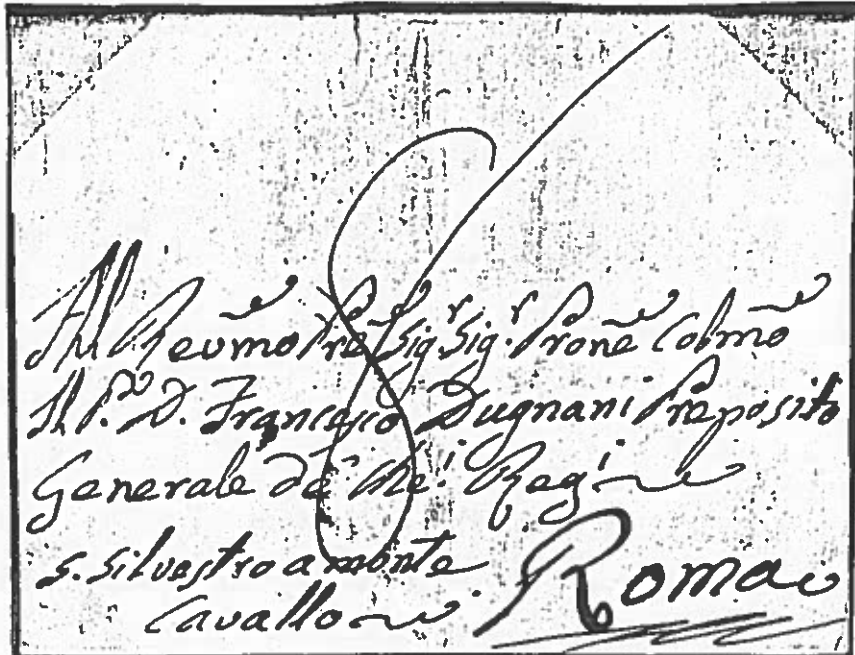 Al Reũmo Prẽ Sig.r Sig.r Pronẽ Colmõ
Il P. D. Francesco Dugnani Preposito
Generale de' Che.i Reg.i
S. Silvestro a monte
Cavallo
Roma